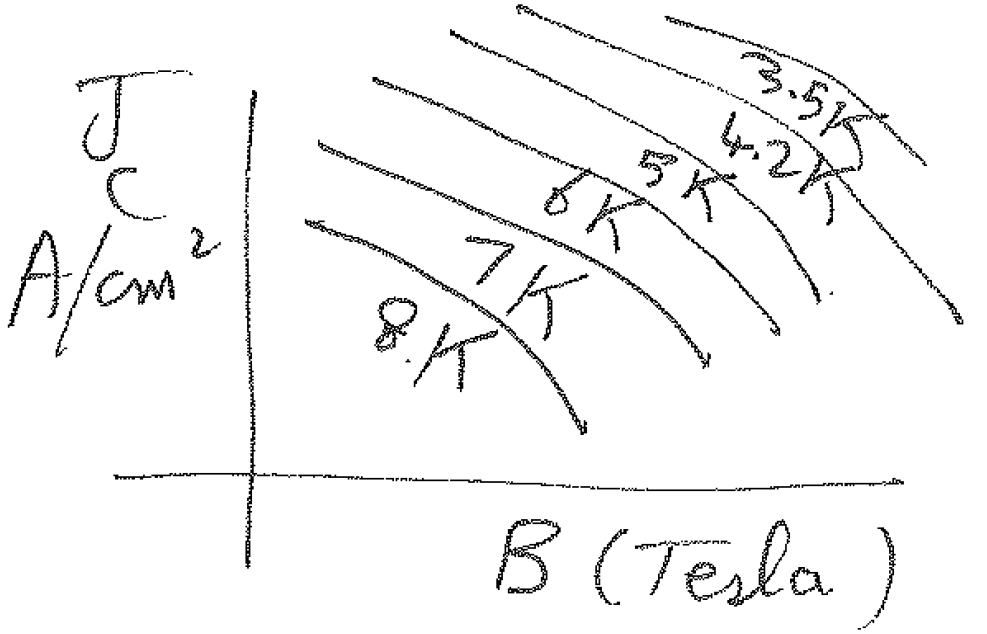 J
C
A/cm²
3.5K
4.2K
5K
6K
7K
8.K
B (Tesla)